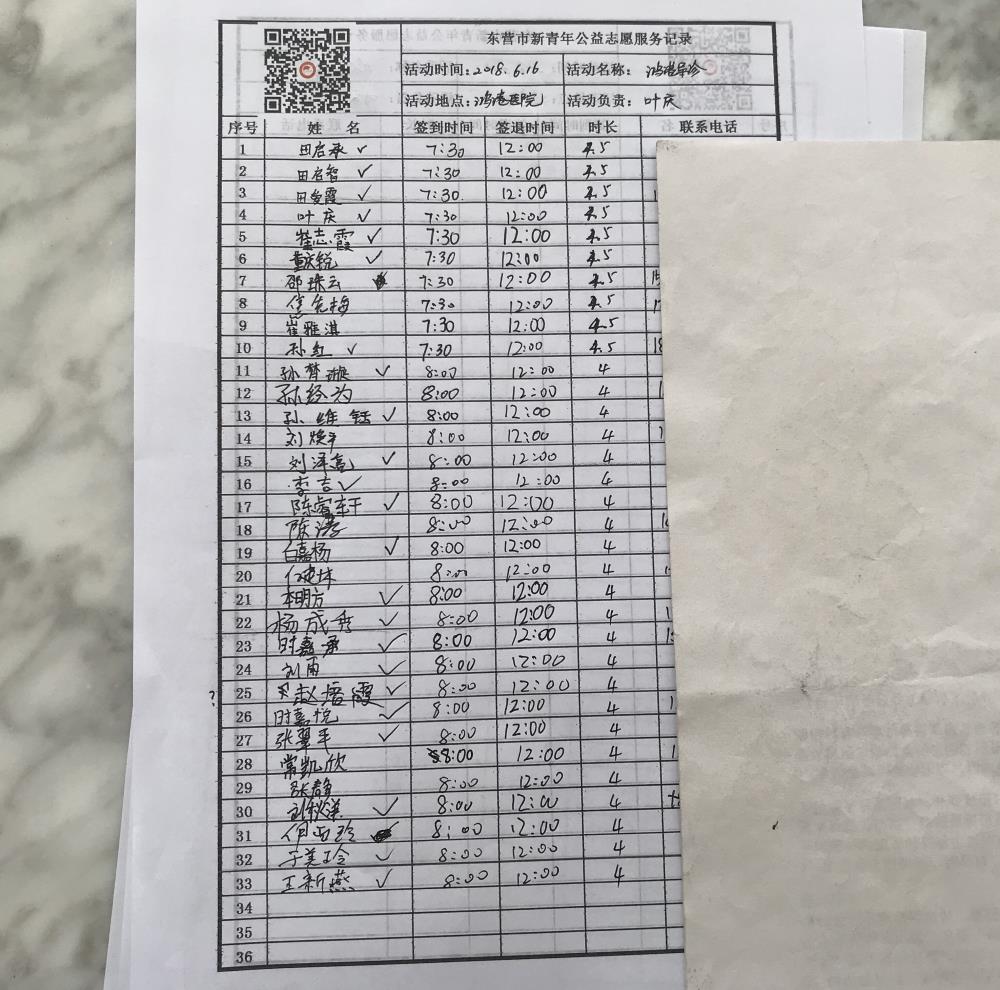 东营市新青年公益志愿服务记录
活动时间:2018.6.16 活动名称:鸿港导诊
活动地点:鸿港医院 活动负责:叶庆
序号 姓 名 签到时间 签退时间 时长 联系电话
1 田启承 ✓ 7:30 12:00 4.5
2 田启智 ✓ 7:30 12:00 4.5
3 田爱霞 ✓ 7:30 12:00 4.5
4 叶庆 ✓ 7:30 12:00 4.5
5 崔志霞 ✓ 7:30 12:00 4.5
6 董庆锐 ✓ 7:30 12:00 4.5
7 邵珠云 7:30 12:00 4.5
8 焦先梅 7:30 12:00 4.5
9 崔雅淇 7:30 12:00 4.5
10 孙红 ✓ 7:30 12:00 4.5 18
11 孙梦璇 ✓ 8:00 12:00 4
12 孙经为 8:00 12:00 4
13 孙维钰 ✓ 8:00 12:00 4
14 刘焕平 8:00 12:00 4
15 刘泽亮 ✓ 8:00 12:00 4
16 李吉 ✓ 8:00 12:00 4
17 陈睿轩 ✓ 8:00 12:00 4
18 陈涛 8:00 12:00 4
19 白嘉杨 ✓ 8:00 12:00 4
20 8:00 12:00 4
21 李明方 ✓ 8:00 12:00 4
22 杨成秀 ✓ 8:00 12:00 4
23 时嘉承 ✓ 8:00 12:00 4
24 刘甫 ✓ 8:00 12:00 4
? 25 赵增霞 ✓ 8:00 12:00 4
26 时嘉悦 ✓ 8:00 12:00 4
27 张翠平 ✓ 8:00 12:00 4
28 常凯欣 8:00 12:00 4
29 张静 8:00 12:00 4
30 刘秋漾 ✓ 8:00 12:00 4
31 8:00 12:00 4
32 于美玲 ✓ 8:00 12:00 4
33 王新燕 ✓ 8:00 12:00 4
34
35
36